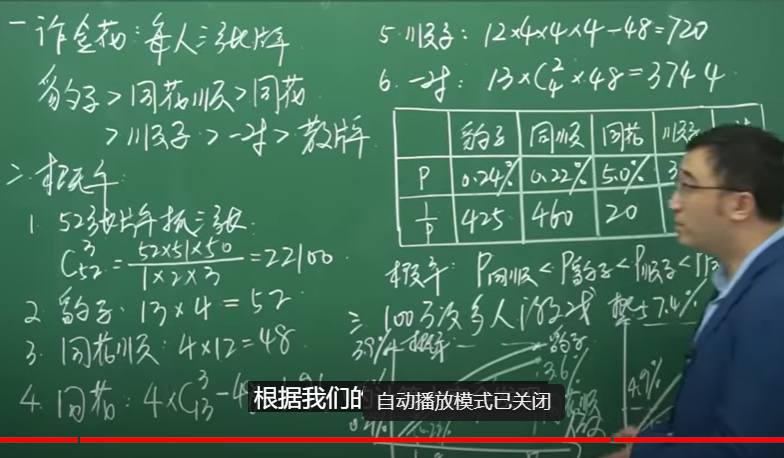 一 诈金花:每人三张牌
豹子>同花顺>同花
>顺子>一对>散牌
二、概率
1. 52张牌抓三张:
C₅₂³=52×51×50/1×2×3=22100
2. 豹子:13×4=52
3. 同花顺:4×12=48
4. 同花:4×C₁₃³-4
5. 顺子:12×4×4×4-48=720
6. 一对:13×C₄²×48=3744
豹子 同顺 同花 顺子
P 0.24% 0.22% 5.0% 3
1/P 425 460 20
概率:P同顺<P豹子<P顺子<P
三 100万次多人游戏 7.4%
概率 豹子
3.6%
4.9%
根据我们的
自动播放模式已关闭